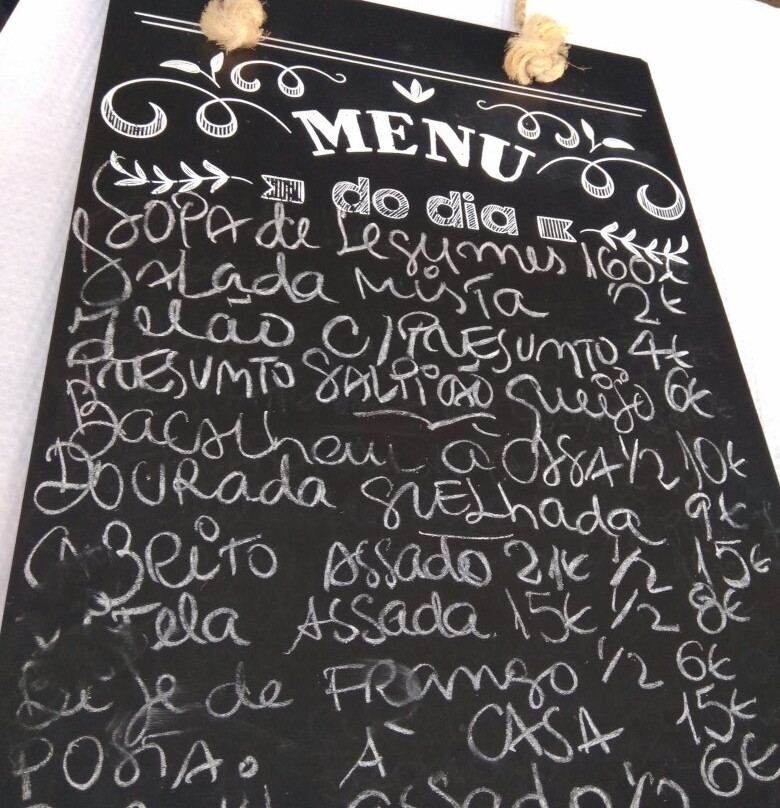 MENU
do dia
SOPA de Legumes 160€
Salada Mista 2€
Melão C/PRESUNTO 4€
PRESUNTO SALPICÃO Queijo 6€
Bacalhau à CASA 1/2 10€
DOURADA GRELhada 9€
CABRITO ASSADO 21€ 1/2 15€
ASSADA 15€ 1/2 8€
de FRANGO 1/2 6€
POSTA À CASA 15€
1/2 6€